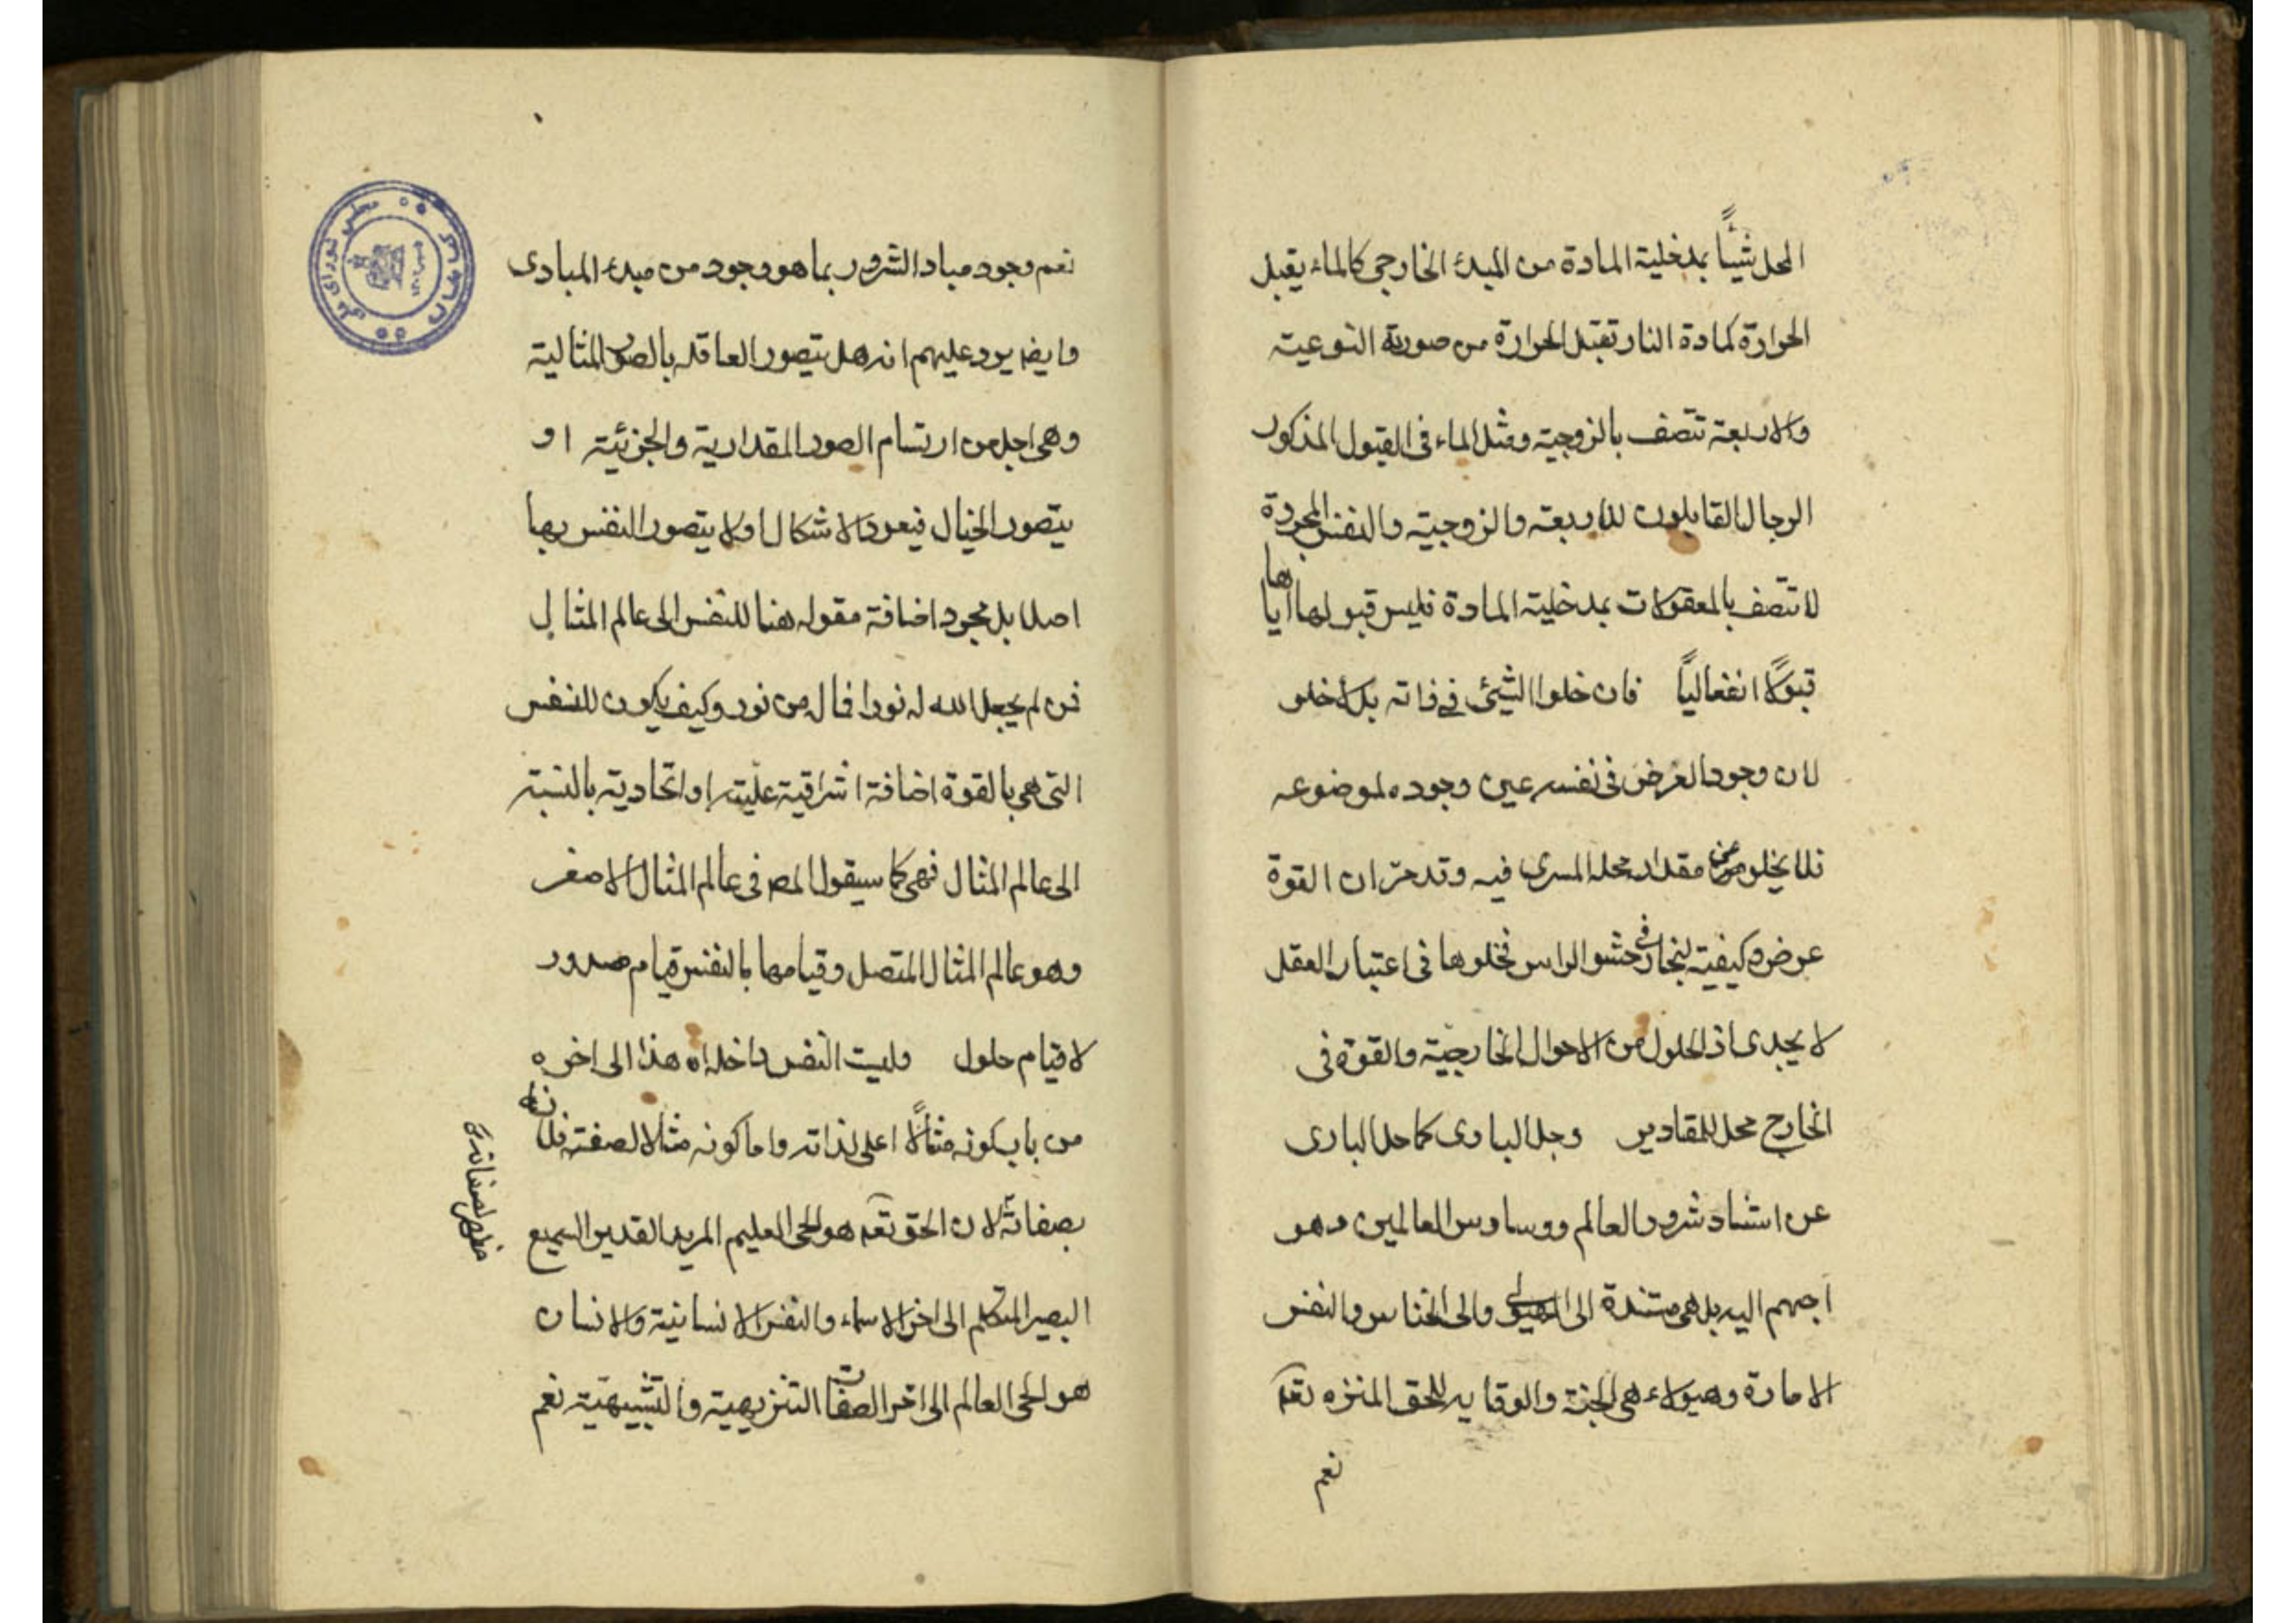 المحل شيئًا بمدخلية المادة من المبدء الخارجى كالماء يقبل
الحرارة كمادة النار تقبل الحرارة من صورته النوعية
والاربعة تتصف بالزوجية ومثل الماء فى القبول المذكور
الرجال القابلون للاربعة والزوجية والنفس المجردة
لا تتصف بالمعقولات بمدخلية المادة فليس قبولها اياها
قبولًا انفعاليًا فان خلوا الشيئ فى ذاته بلا خلو
لان وجود العرض فى نفسه عين وجوده لموضوعه
فلا يخلو عن مقدار محله المسرى فيه وقد مرّ ان القوة
عرض وكيفية لبخار فى حشو الراس فخلوها فى اعتبار العقل
لا يجدى اذ الحلول من الاحوال الخارجية والقوة فى
الخارج محل للمقادير وجل البارى كما جل البارى
عن استناد شرور العالم ووساوس العالمين وهو
اجهم اليه بل هى مستندة الى الهيولى والى الخناس والنفس
الامارة وهيولاء هى الجنة والوقايه للحق المنزه تعم
نعم
نعم وجود مباد الشرور بما هو وجود من مبدء المبادى
وايضا يرد عليهم انه هل يتصور العاقله بالصور المثالية
وهى اجل من ارتسام الصور المقدارية والجزئية او
يتصور الخيال فيعود الاشكال او لا يتصور النفس بها
اصلا بل مجرد اضافة مقوله هنا للنفس الى عالم المثال
فمن لم يجعل الله له نورا فماله من نور وكيف يكون للنفس
التى هى بالقوة اضافة اشراقية عليته او اتحادية بالنسبة
الى عالم المثال فهى كما سيقول المصر فى عالم المثال الاصغر
وهو عالم المثال المتصل وقيامها بالنفس قيام صدور
لا قيام حلول وليت النفس داخله اه هذا الى اخره
من باب كونه مثالًا اعلى لذاته واما كونه مثالا لصفته فلانه
بصفاته لان الحق تعم هو الحى العليم المريد القدير السميع
البصير المتكلم الى اخر الاسماء والنفس الانسانية والانسان
هو الحى العالم الى اخر الصفات التنزيهية والتشبيهية نعم
مظهر لصفاته